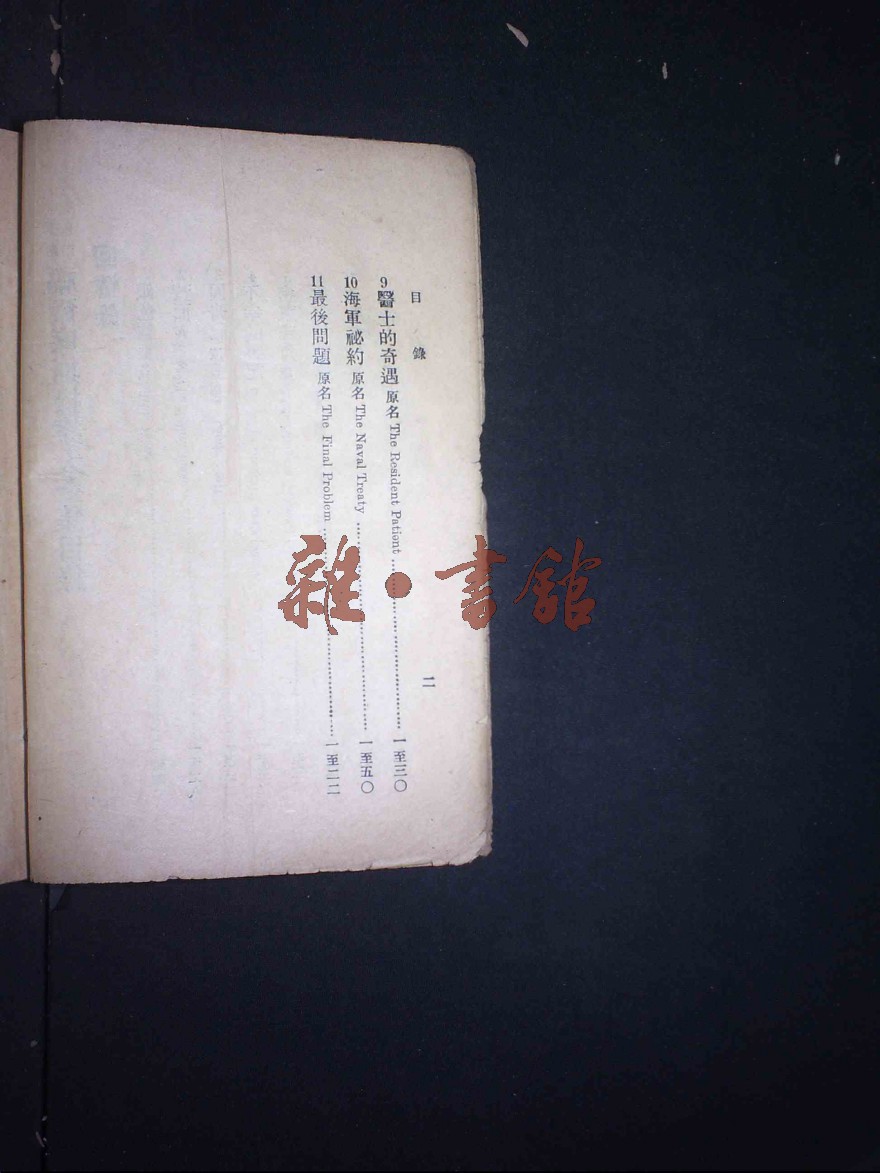 目錄
二
9 醫士的奇遇 原名 The Resident Patient 一至三〇
10 海軍祕約 原名 The Naval Treaty 一至五〇
11 最後問題 原名 The Final Problem 一至二二
雜·書館